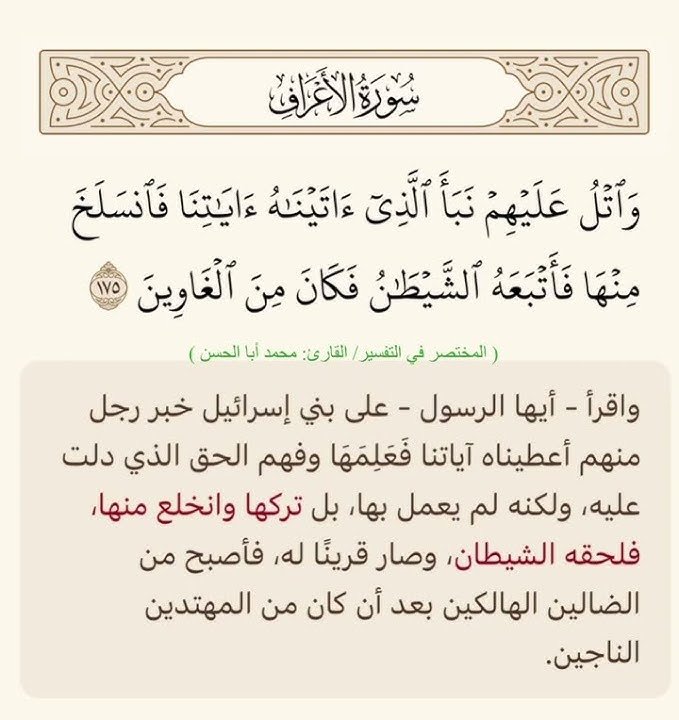 سُورَةُ الأَعْرَافِ
وَٱتْلُ عَلَيْهِمْ نَبَأَ ٱلَّذِىٓ ءَاتَيْنَٰهُ ءَايَٰتِنَا فَٱنسَلَخَ
مِنْهَا فَأَتْبَعَهُ ٱلشَّيْطَٰنُ فَكَانَ مِنَ ٱلْغَاوِينَ ١٧٥
( المختصر في التفسير/ القارئ: محمد أبا الحسن )
واقرأ - أيها الرسول - على بني إسرائيل خبر رجل
منهم أعطيناه آياتنا فَعَلِمَهَا وفهم الحق الذي دلت
عليه، ولكنه لم يعمل بها، بل تركها وانخلع منها،
فلحقه الشيطان، وصار قرينًا له، فأصبح من
الضالين الهالكين بعد أن كان من المهتدين
الناجين.